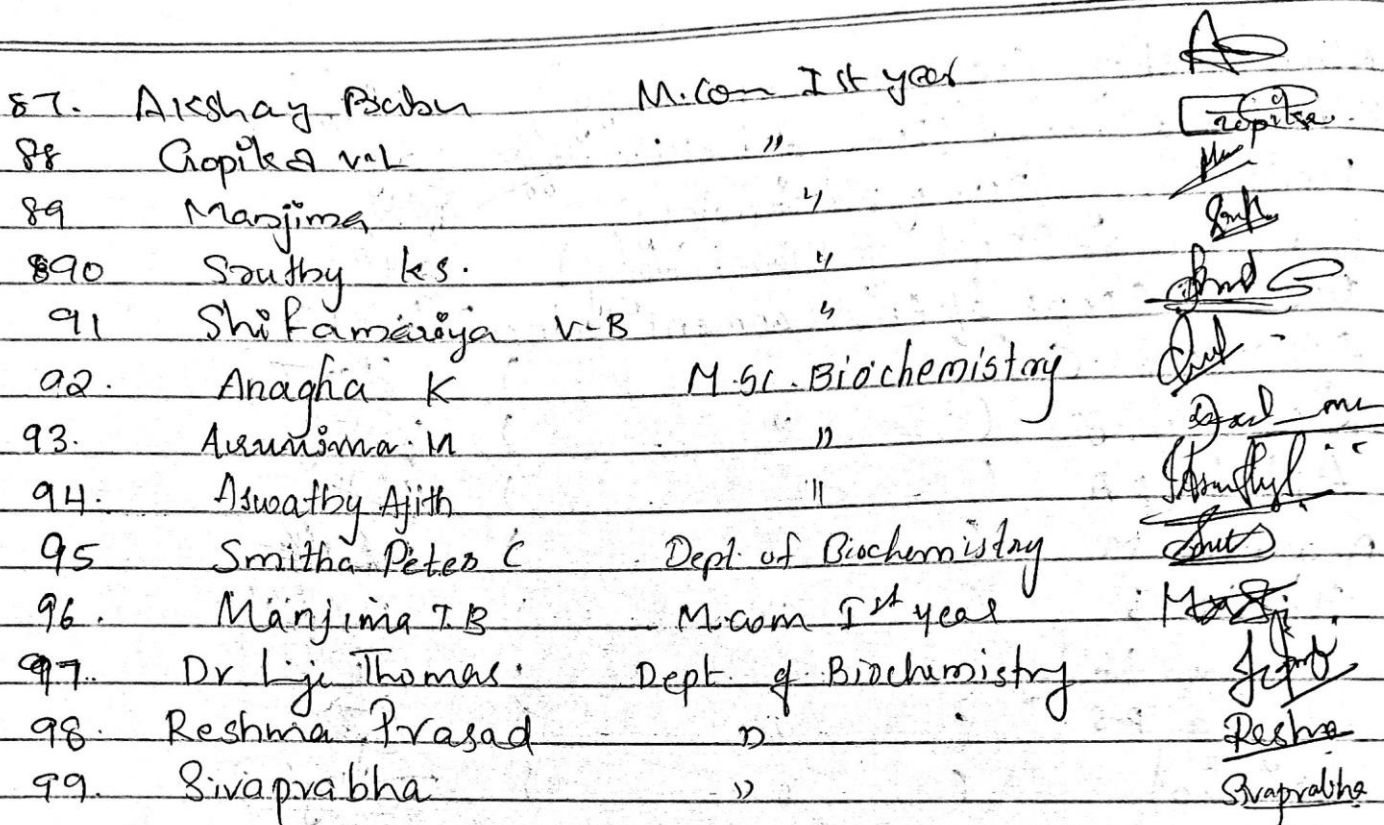 87. Akshay Babu M.Com Ist year
88 Gopika V.L " Gopika
89 Manjima "
90 Sruthy K S. "
91 Shifamariya V-B "
92. Anagha K M.Sc. Biochemistry
93. Arunima M "
94. Aswathy Ajith "
95 Smitha Peter C Dept of Biochemistry
96. Manjima T.B M.com Ist year
97. Dr Liji Thomas. Dept of Biochemistry
98. Reshma Prasad " Reshma
99. Sivaprabha " Sivaprabha